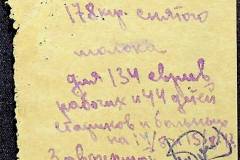 178 кр. снятого
молока
для 134 евреев
рабочих и 44 детей
стариков и больных
на